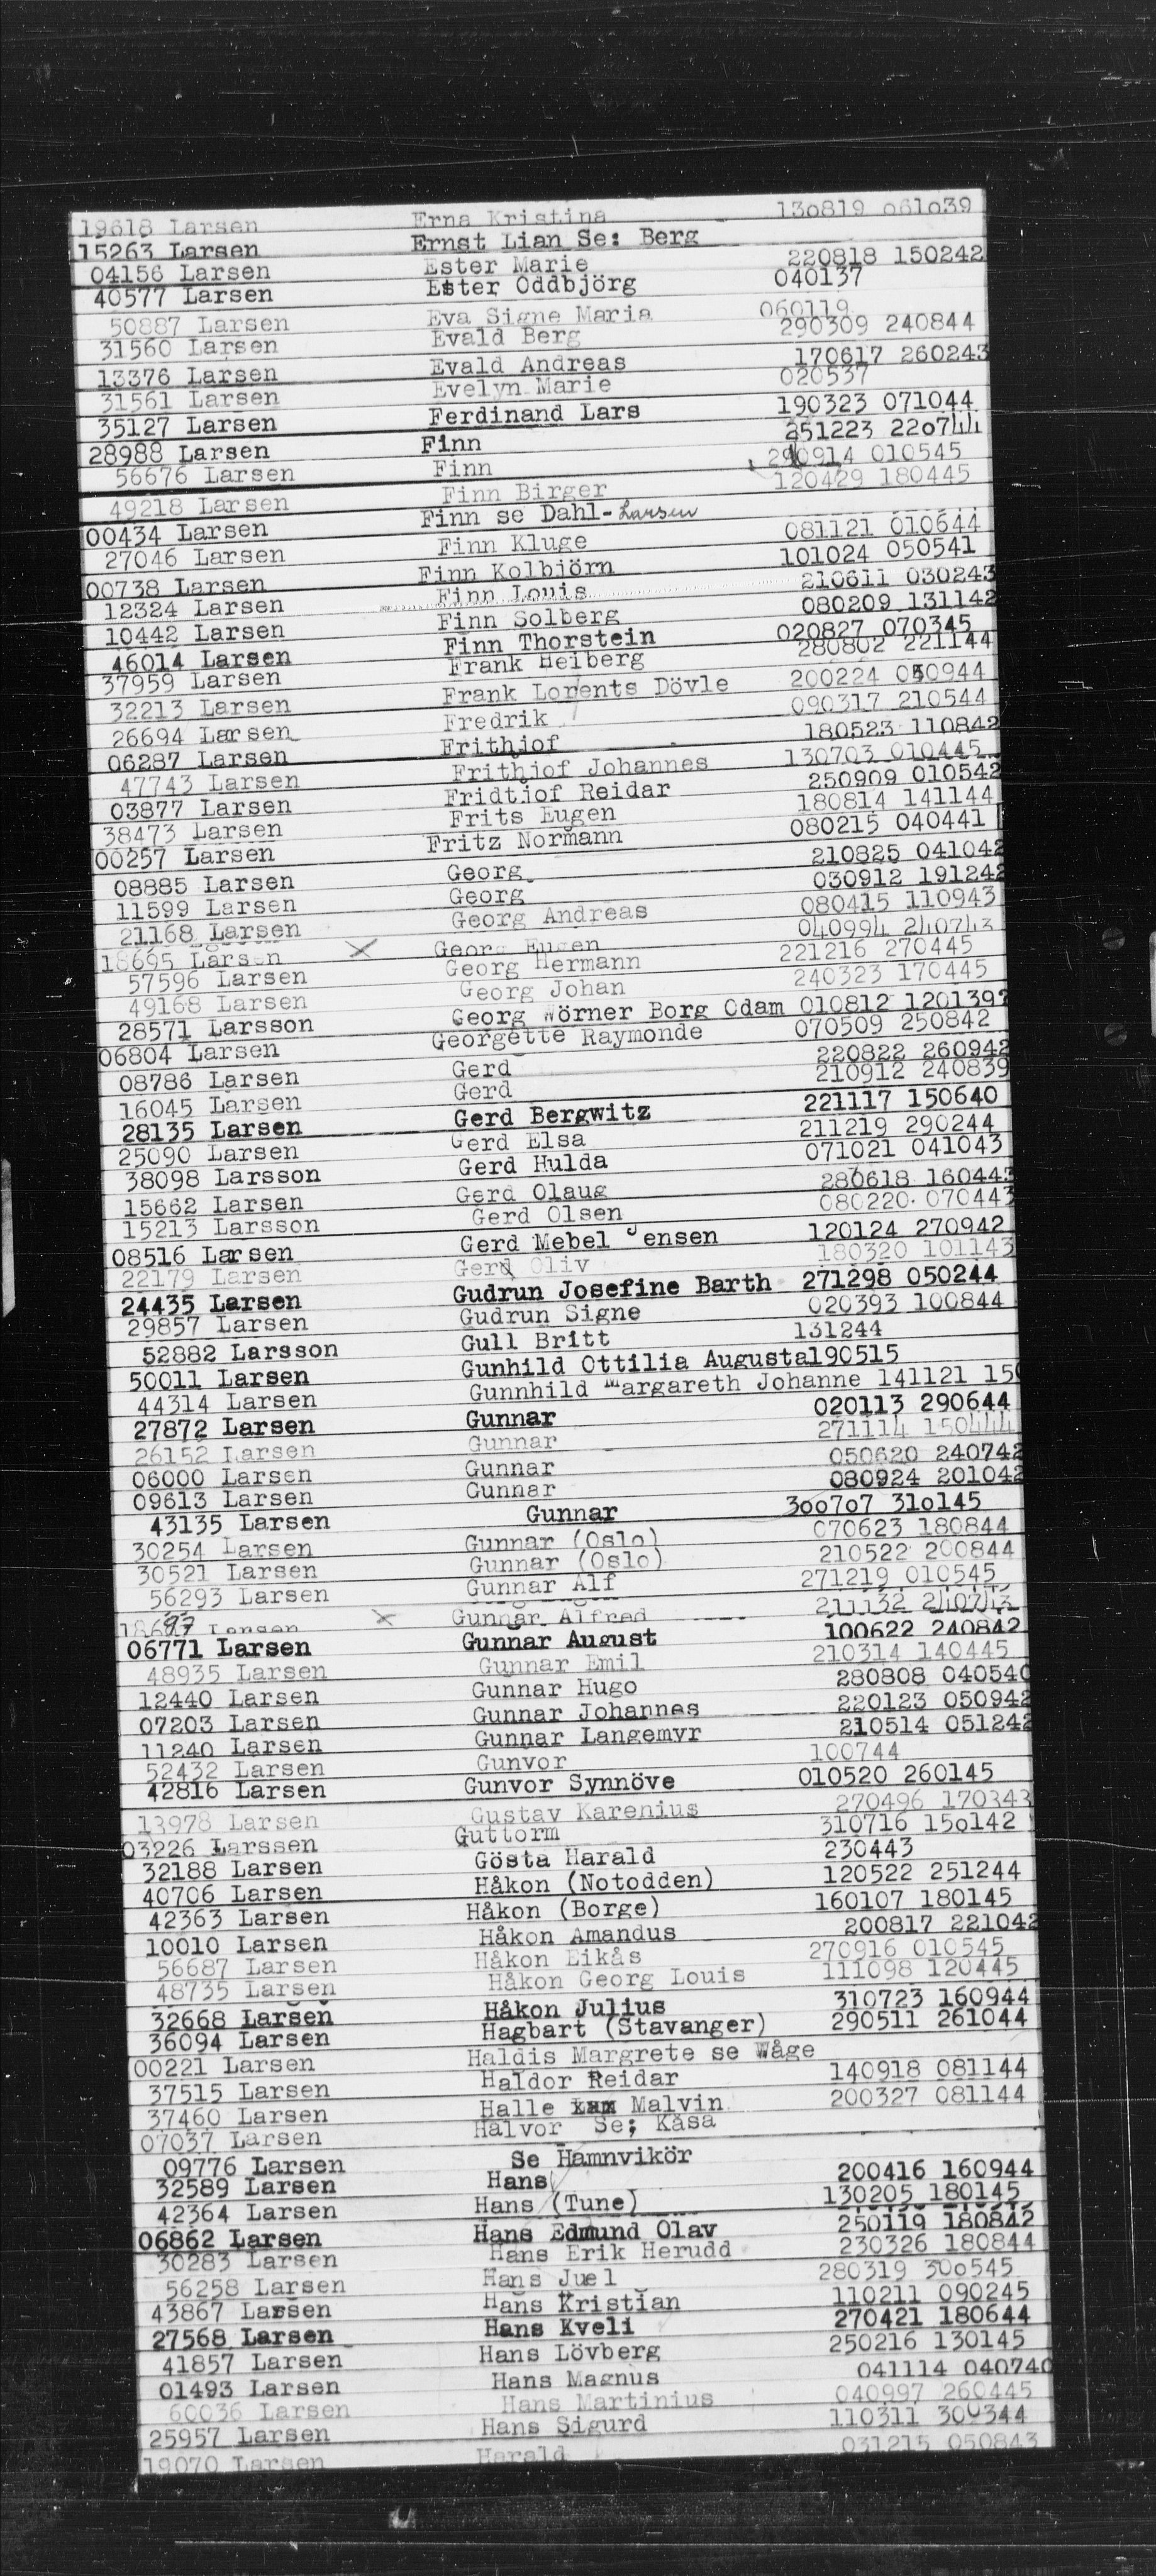 19618 Larsen Erna Kristina 130819 061039
15263 Larsen Ernst Lian Se: Berg
04156 Larsen Ester Marie 220818 150242
40577 Larsen Ester Oddbjörg 040137
50887 Larsen Eva Signe Marie 060119
31560 Larsen Evald Berg 290309 240844
13376 Larsen Evald Andreas 170617 260243
31561 Larsen Evelyn Marie 020537
35127 Larsen Ferdinand Lars 190323 071044
28988 Larsen Finn 251223 220744
56676 Larsen Finn 290914 010545
49218 Larsen Finn Birger 120429 180445
00434 Larsen Finn se Dahl-Larsen
27046 Larsen Finn Kluge 081121 010644
00738 Larsen Finn Kolbjörn 101024 050541
12324 Larsen Finn Louis 210611 030243
10442 Larsen Finn Solberg 080209 131142
46014 Larsen Finn Thorstein 020827 070345
37959 Larsen Frank Heiberg 280802 221144
32213 Larsen Frank Lorents Dövle 200224 050944
26694 Larsen Fredrik 090317 210544
06287 Larsen Frithjof 180523 110842
47743 Larsen Frithjof Johannes 130703 010445
03877 Larsen Fridtjof Reidar 250909 010542
38473 Larsen Frits Eugen 180814 141144
00257 Larsen Fritz Normann 080215 040441
08885 Larsen Georg 210825 041042
11599 Larsen Georg 030912 191242
21168 Larsen Georg Andreas 080415 110943
18695 Larsen X Georg Eugen 040994 240743
57596 Larsen Georg Hermann 221216 270445
49168 Larsen Georg Johan 240323 170445
28571 Larsson Georg Wörner Borg Odam 010812 1201392
06804 Larsen Georgette Raymonde 070509 250842
08786 Larsen Gerd 220822 260942
16045 Larsen Gerd 210912 240839
28135 Larsen Gerd Bergwitz 221117 150640
25090 Larsen Gerd Elsa 211219 290244
38098 Larsson Gerd Hulda 071021 041043
15662 Larsen Gerd Olaug 280618 160443
15213 Larsson Gerd Olsen 080220 070443
08516 Larsen Gerd Mebel Jensen 120124 270942
22179 Larsen Gerd Oliv 180320 101143
24435 Larsen Gudrun Josefine Barth 271298 050244
29857 Larsen Gudrun Signe 020393 100844
52882 Larsson Gull Britt 131244
50011 Larsen Gunhild Ottilia Augusta190515
44314 Larsen Gunnhild Margareth Johanne 141121 150
27872 Larsen Gunnar 020113 290644
26152 Larsen Gunnar 271114 150444
06000 Larsen Gunnar 050620 240742
09613 Larsen Gunnar 080924 201042
43135 Larsen Gunnar 300707 310145
30254 Larsen Gunnar (Oslo) 070623 180844
30521 Larsen Gunnar (Oslo) 210522 200844
56293 Larsen Gunnar Alf 271219 010545
18697 Larsen X Gunnar Alfred 211132 240743
06771 Larsen Gunnar August 100622 240842
48935 Larsen Gunnar Emil 210314 140445
12440 Larsen Gunnar Hugo 280808 040540
07203 Larsen Gunnar Johannes 220123 050942
11240 Larsen Gunnar Langemyr 210514 051242
52432 Larsen Gunvor 100744
42816 Larsen Gunvor Synnöve 010520 260145
13978 Larsen Gustav Karenius 270496 170343
03226 Larssen Guttorm 310716 150142
32188 Larsen Gösta Harald 230443
40706 Larsen Håkon (Notodden) 120522 251244
42363 Larsen Håkon (Borge) 160107 180145
10010 Larsen Håkon Amandus 200817 221042
56687 Larsen Håkon Eikås 270916 010545
48735 Larsen Håkon Georg Louis 111098 120445
32668 Larsen Håkon Julius 310723 160944
36094 Larsen Hagbart (Stavanger) 290511 261044
00221 Larsen Haldis Margrete se Wåge
37515 Larsen Haldor Reidar 140918 081144
37460 Larsen Halle Malvin 200327 081144
07037 Larsen Halvor Se; Kåsa
09776 Larsen Se Hamnvikör
32589 Larsen Hans 200416 160944
42364 Larsen Hans (Tune) 130205 180145
06862 Larsen Hans Edmund Olav 250119 180842
30283 Larsen Hans Erik Herudd 230326 180844
56258 Larsen Hans Juel 280319 300545
43867 Larsen Hans Kristian 110211 090245
27568 Larsen Hans Kveli 270421 180644
41857 Larsen Hans Lövberg 250216 130145
01493 Larsen Hans Magnus 041114 040740
60036 Larsen Hans Martinius 040997 260445
25957 Larsen Hans Sigurd 110311 300344
19070 Larsen Harald 031215 050843